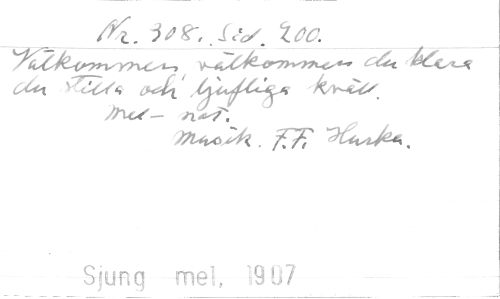 Nr. 308. Sid. 200.
Välkommen, välkommen du klara
du stilla och ljufliga kväll.
mel - not.
Musik. F.F. Hurka.
Sjung mel, 1907